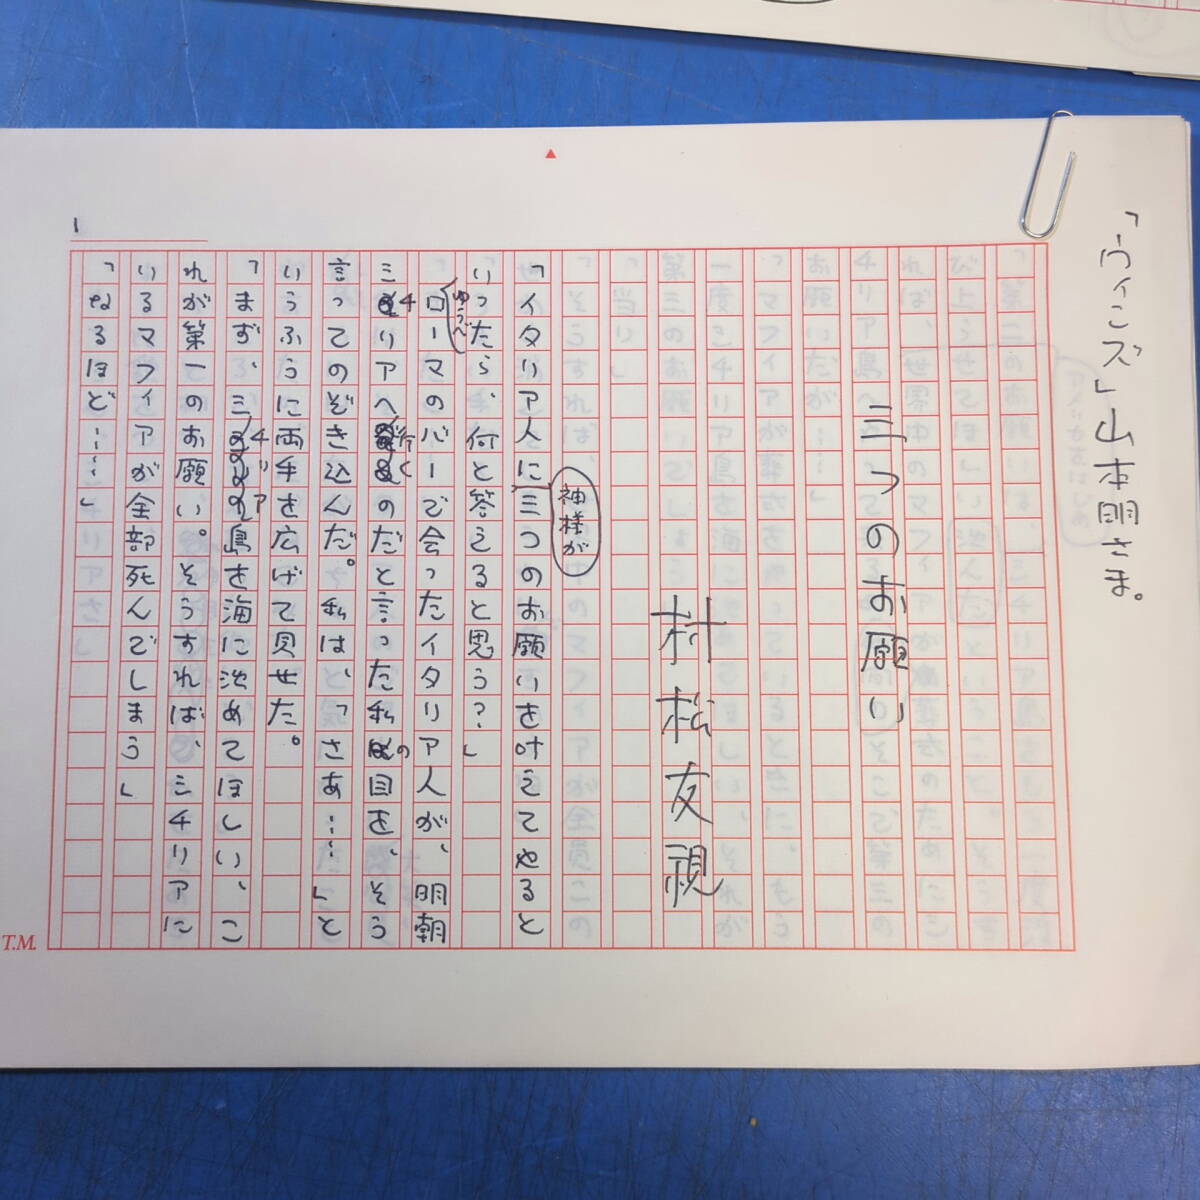 「ウィンズ」山本明さま。
三つのお願い
村松友視
神様が
「イタリア人に三つのお願いを叶えてやると
いったら、何と答えると思う?」
ゆうべ
ローマのバーで会ったイタリア人が、明朝
シチリアへ行くのだと言った私の目を、そう
言ってのぞき込んだ。私は、「さあ……」と
いうふうに両手を広げて見せた。
「まず、シチリア島を海に沈めてほしい、こ
れが第一のお願い。そうすれば、シチリアに
いるマフィアが全部死んでしまう」
「なるほど……」
1
T.M.